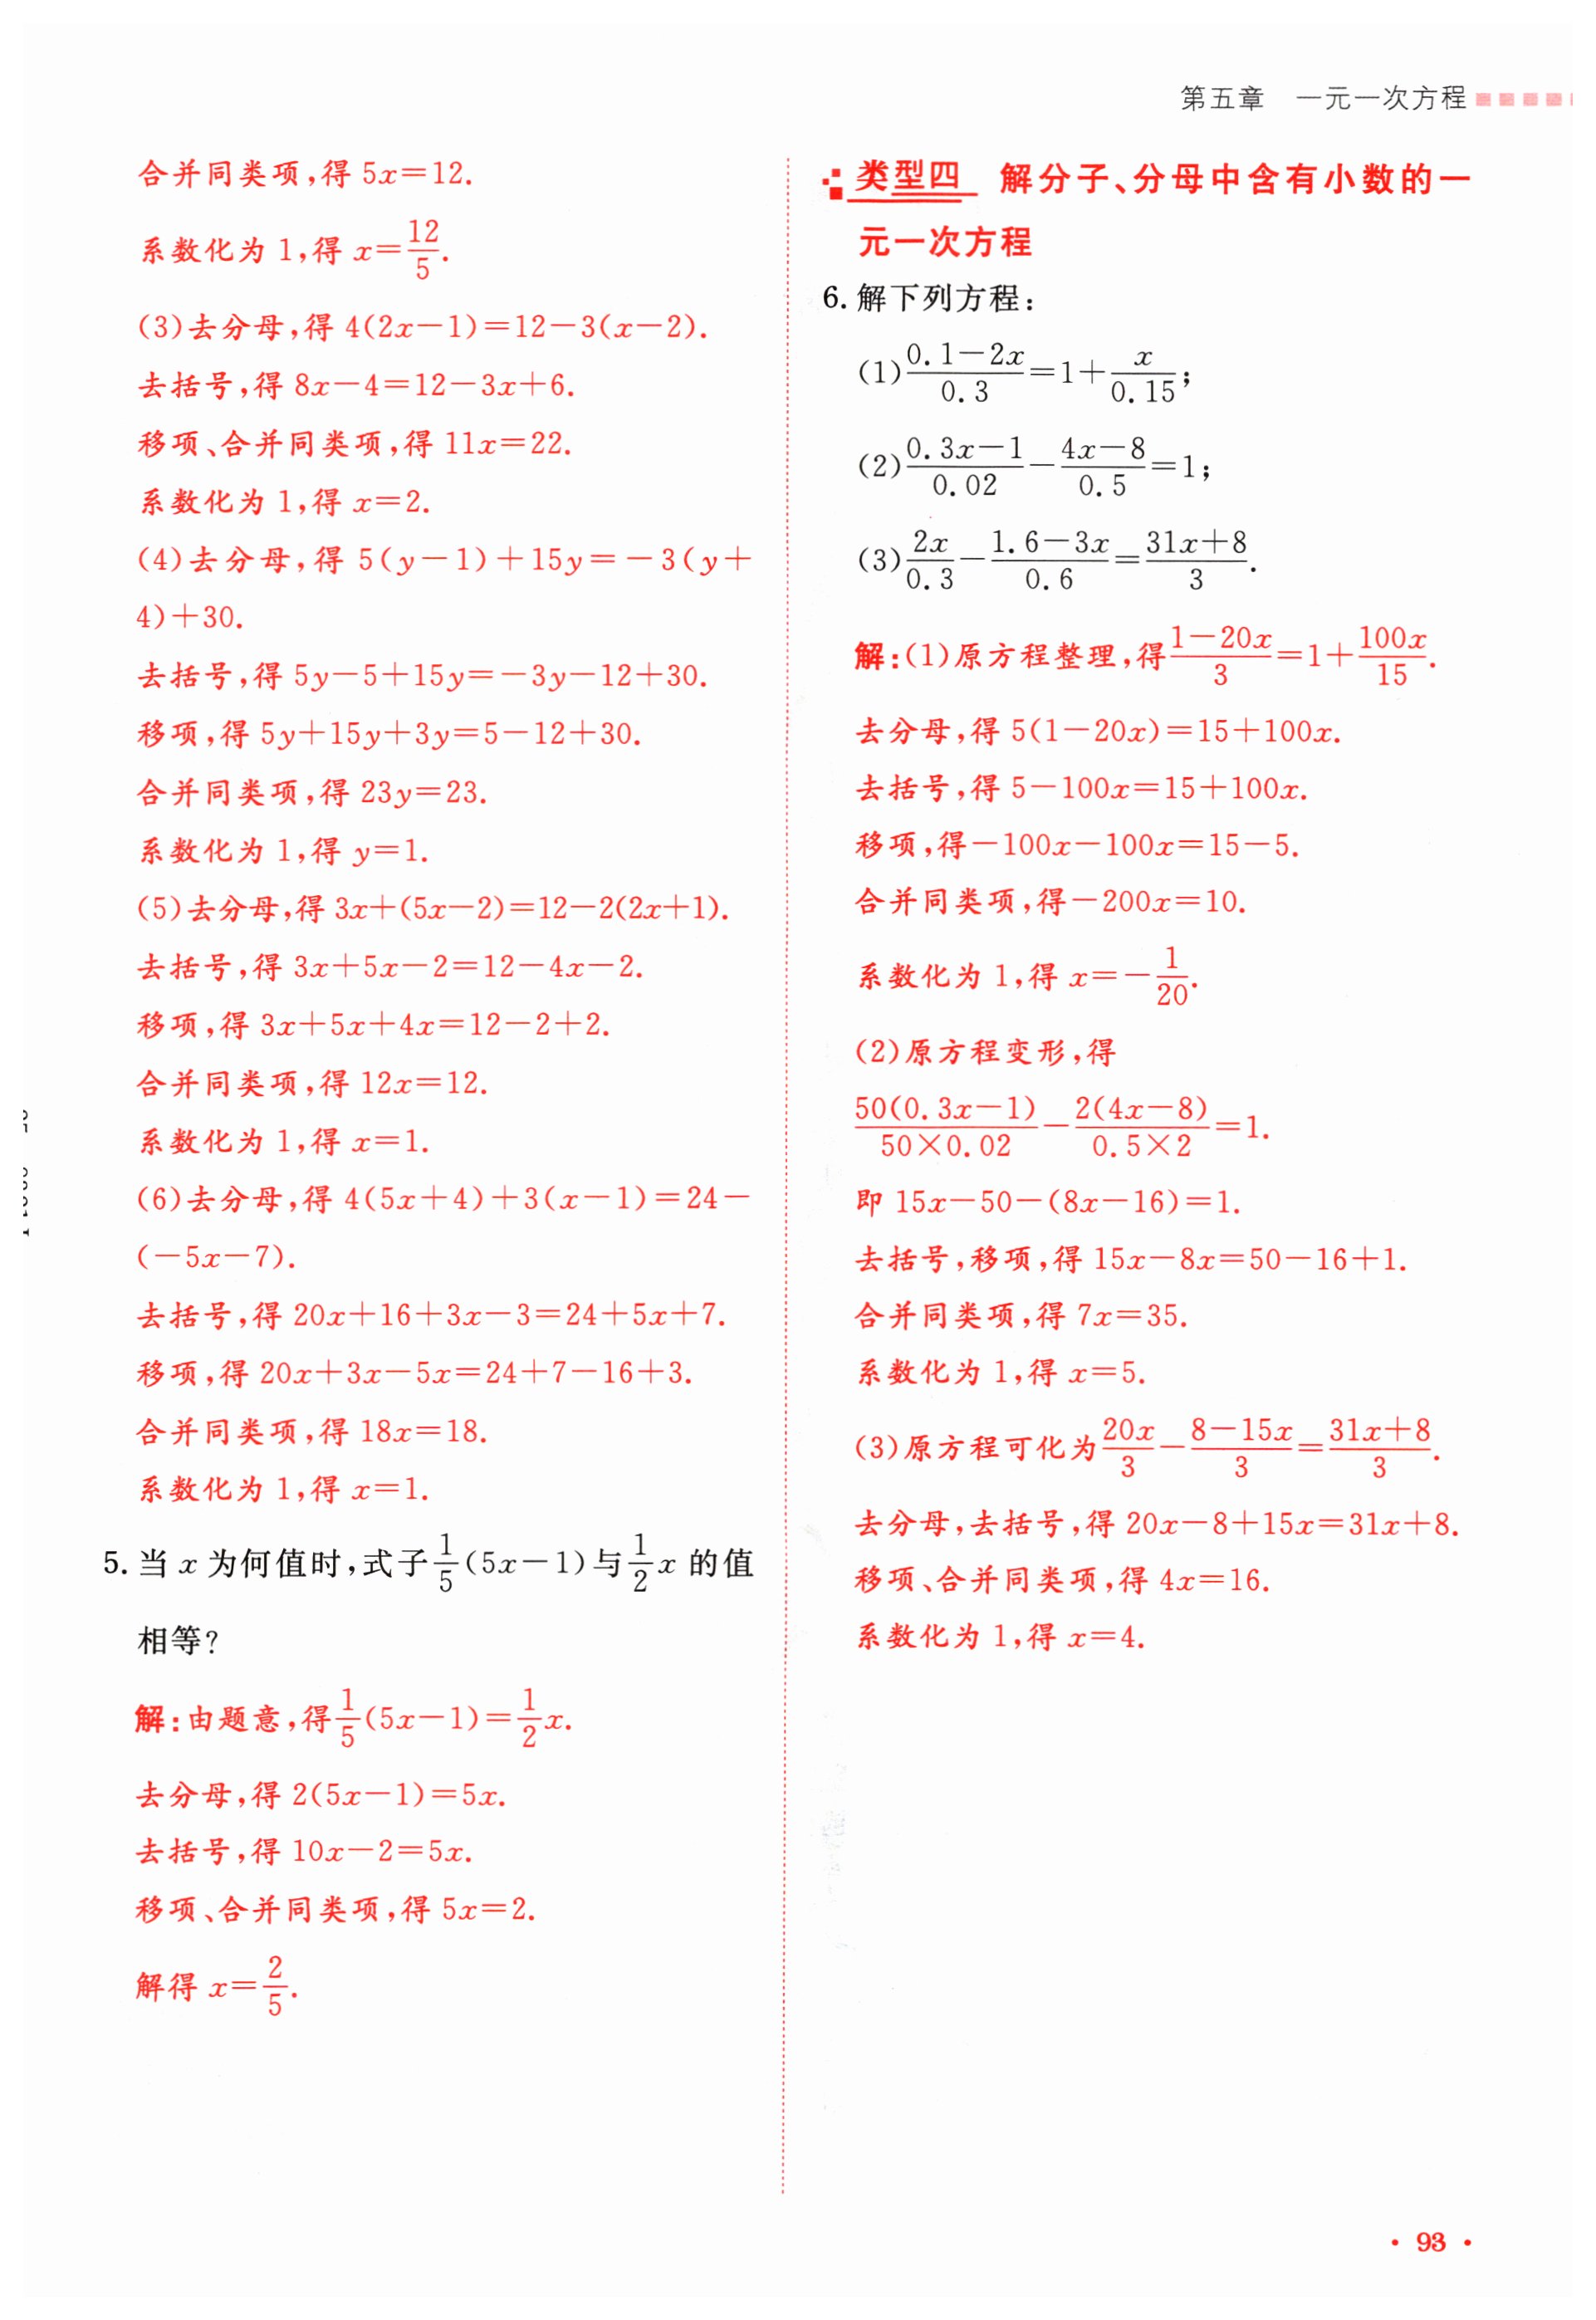 第五章 一元一次方程
合并同类项,得 5x=12.
系数化为 1,得 x=12/5.
(3)去分母,得 4(2x-1)=12-3(x-2).
去括号,得 8x-4=12-3x+6.
移项、合并同类项,得 11x=22.
系数化为 1,得 x=2.
(4)去分母,得 5(y-1)+15y=-3(y+
4)+30.
去括号,得 5y-5+15y=-3y-12+30.
移项,得 5y+15y+3y=5-12+30.
合并同类项,得 23y=23.
系数化为 1,得 y=1.
(5)去分母,得 3x+(5x-2)=12-2(2x+1).
去括号,得 3x+5x-2=12-4x-2.
移项,得 3x+5x+4x=12-2+2.
合并同类项,得 12x=12.
系数化为 1,得 x=1.
(6)去分母,得 4(5x+4)+3(x-1)=24-
(-5x-7).
去括号,得 20x+16+3x-3=24+5x+7.
移项,得 20x+3x-5x=24+7-16+3.
合并同类项,得 18x=18.
系数化为 1,得 x=1.
5. 当 x 为何值时,式子1/5(5x-1)与1/2x 的值
相等?
解:由题意,得1/5(5x-1)=1/2x.
去分母,得 2(5x-1)=5x.
去括号,得 10x-2=5x.
移项、合并同类项,得 5x=2.
解得 x=2/5.
类型四 解分子、分母中含有小数的一
元一次方程
6. 解下列方程:
(1)(0.1-2x)/0.3=1+x/0.15;
(2)(0.3x-1)/0.02-(4x-8)/0.5=1;
(3)2x/0.3-(1.6-3x)/0.6=(31x+8)/3.
解:(1)原方程整理,得(1-20x)/3=1+100x/15.
去分母,得 5(1-20x)=15+100x.
去括号,得 5-100x=15+100x.
移项,得-100x-100x=15-5.
合并同类项,得-200x=10.
系数化为 1,得 x=-1/20.
(2)原方程变形,得
50(0.3x-1)/(50×0.02)-2(4x-8)/(0.5×2)=1.
即 15x-50-(8x-16)=1.
去括号,移项,得 15x-8x=50-16+1.
合并同类项,得 7x=35.
系数化为 1,得 x=5.
(3)原方程可化为20x/3-(8-15x)/3=(31x+8)/3.
去分母,去括号,得 20x-8+15x=31x+8.
移项、合并同类项,得 4x=16.
系数化为 1,得 x=4.
· 93 ·